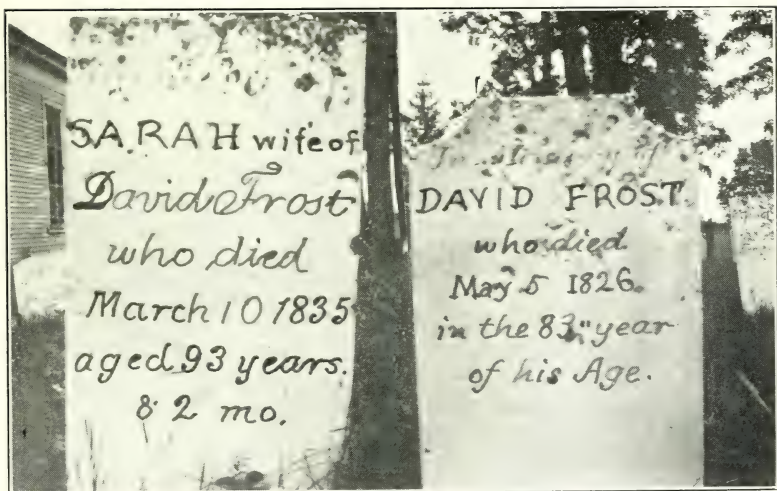 SARAH wife of
David Frost
who died
March 10 1835
aged 93 years.
& 2 mo.
In memory of
DAVID FROST
who died
May 5 1826
in the 83," year
of his Age.